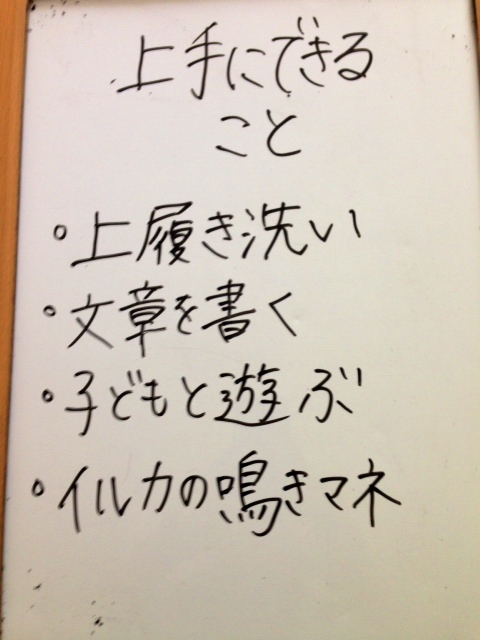 上手にできる
こと
・上履き洗い
・文章を書く
・子どもと遊ぶ
・イルカの鳴きマネ